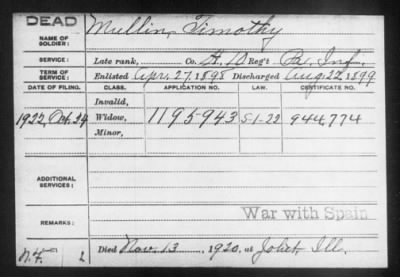 DEAD
NAME OF SOLDIER: Mullin, Timothy
SERVICE: Late rank, Co. Reg't Inf.
TERM OF SERVICE: Enlisted Apr. 27, 1898 Discharged Aug. 22, 1899
DATE OF FILING. CLASS. APPLICATION NO. LAW. CERTIFICATE NO.
Invalid,
1922, Oct. 24 Widow, 1195943 S-1-22 944774
Minor,
ADDITIONAL SERVICES:
War with Spain
REMARKS:
Died Nov. 13, 1920, at Joliet, Ill.